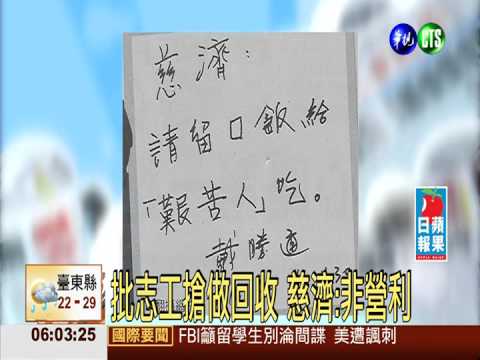 華視 CTS
慈濟：
請留口飯給
「艱苦人」吃。
戴勝通
蘋果
日報
臺東縣
22 - 29
批志工搶做回收 慈濟:非營利
06:03:25
國際要聞
FBI籲留學生別淪間諜 美遭諷刺